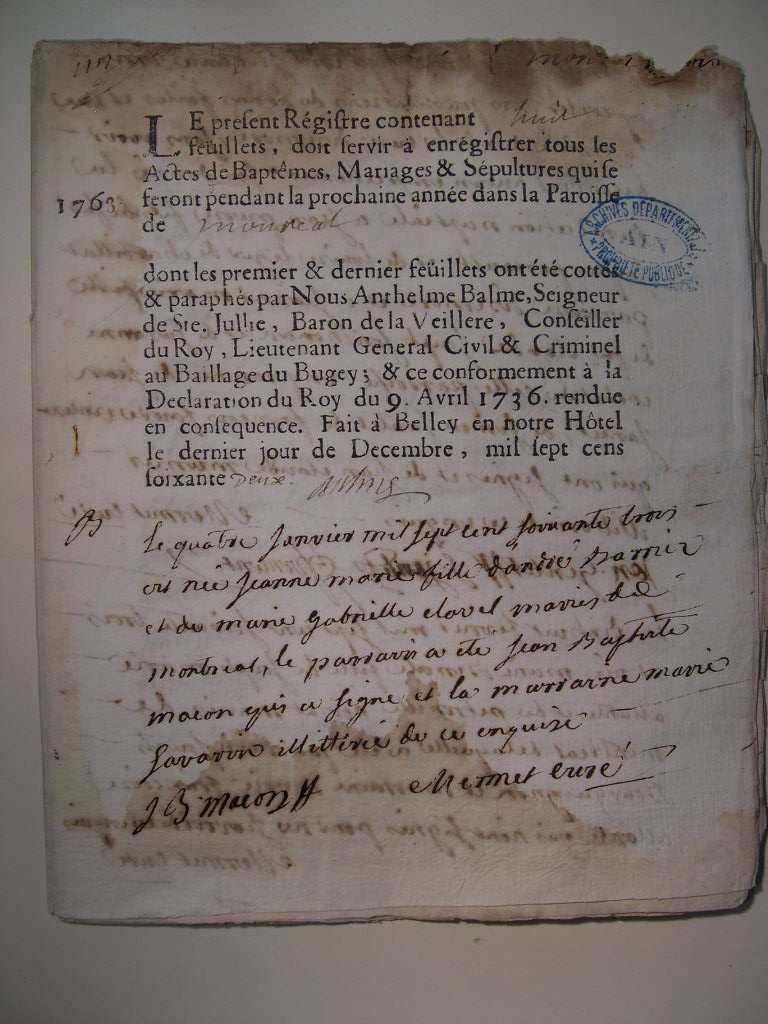 LE present Régistre contenant huit
feuillets, doit servir à enrégistrer tous les
Actes de Baptêmes, Mariages & Sépultures qui se
1763. feront pendant la prochaine année dans la Paroisse
de montreal
ARCHIVES DÉPARTEMENTALES
AIN
PROPRIÉTÉ PUBLIQUE
dont les premier & dernier feüillets ont été cottés
& paraphés par Nous Anthelme Balme, Seigneur
de Ste. Jullie, Baron de la Veillere, Conseiller
du Roy, Lieutenant General Civil & Criminel
au Baillage du Bugey; & ce conformement à la
Declaration du Roy du 9. Avril 1736. rendue
en consequence. Fait à Belley en notre Hôtel
le dernier jour de Decembre, mil sept cens
soixante Deux.
B
Le quatre Janvier mil sept cent soixante trois
est née Jeanne marie fille d'andré
et de marie gabrielle clavel mariés de
montreal, le parrain a eté Jean Baptiste
macon qui a signé et la marraine marie
savarin illitterée de ce enquise
J B macon Mermet curé